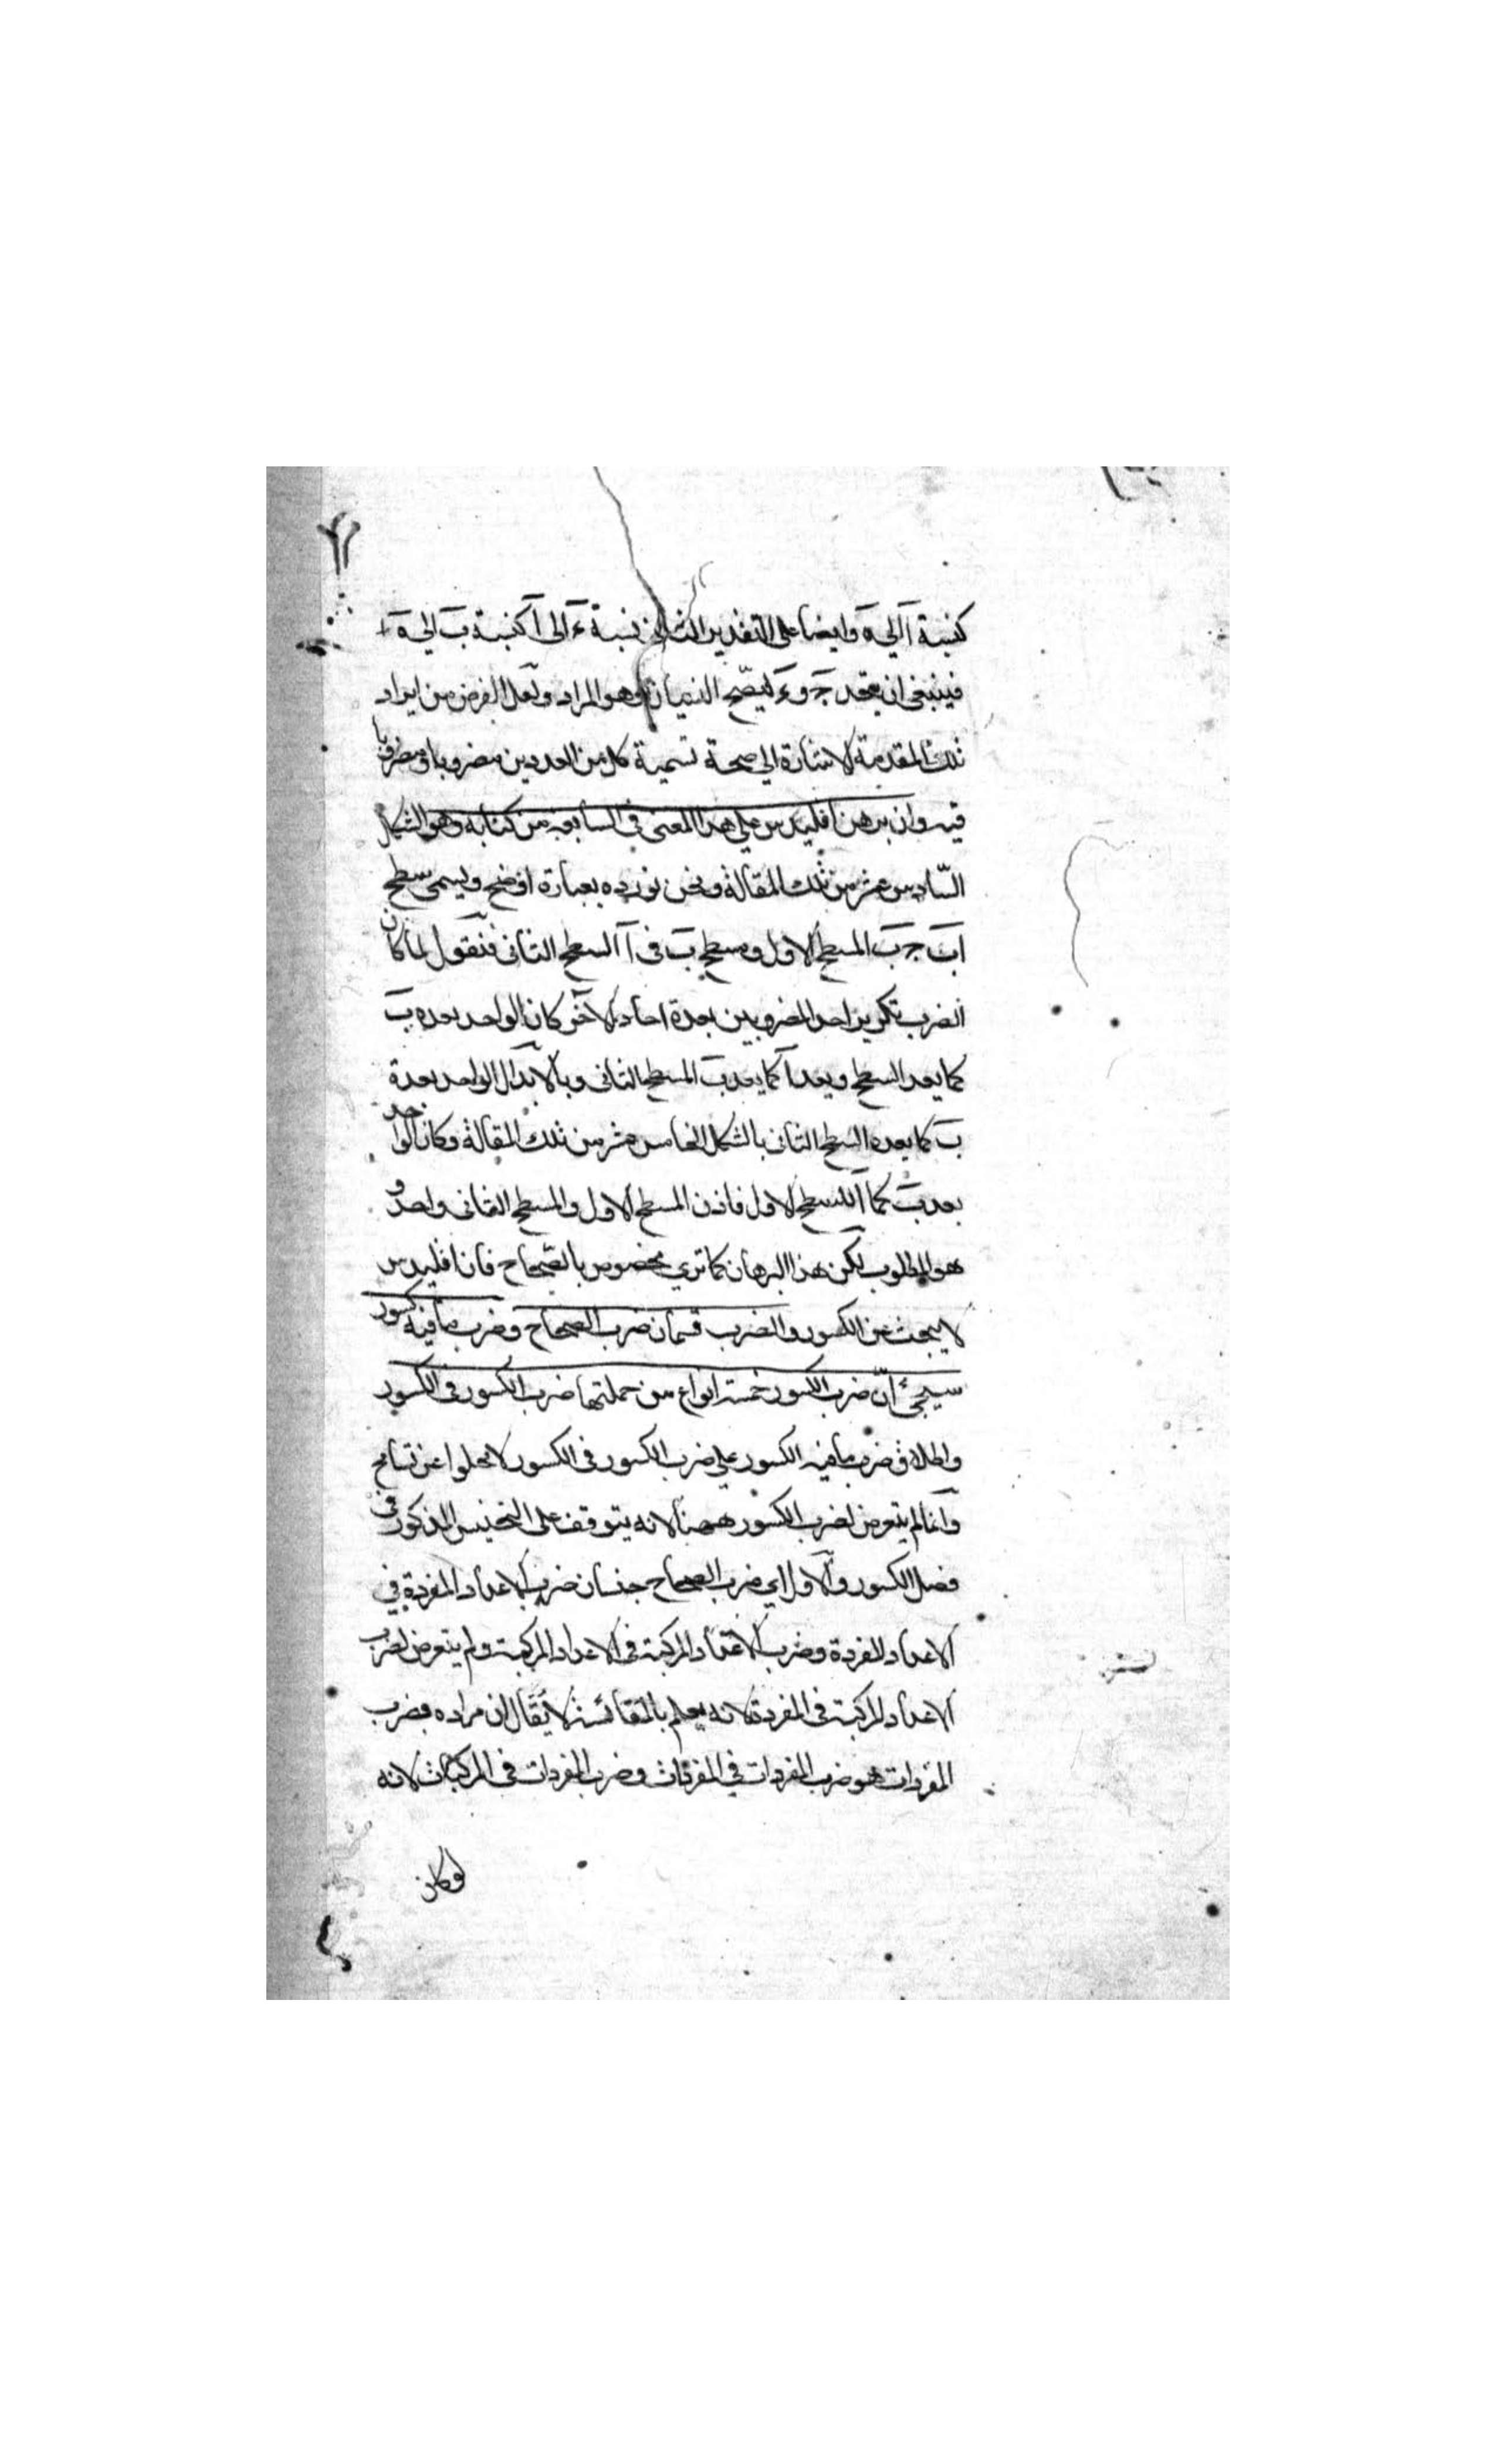 كنسبة آ الى ه وايضا على التقدير الثانى نسبة ء الى آ كنسبة ب الى ه
فينبغى ان يقصد ج و ء ليصح النسبتان وهو المراد ولعل الغرض من ايراد
تلك المقدمة الاشارة الى صحة تسمية كل من العددين مضروبا ومضروبا
فيه وان برهن اقليدس على هذا المعنى فى السابعة من كتابه وهو الشكل
السّادس عشر من تلك المقالة ونحن نورده بعبارة اوضح ويسمى سطح
آ ب ج ب المسطح الاول ومسطح ب فى آ السطح الثانى فنقول لما كان
الضرب تكرير احد المضروبين بعدة احاد الاخر كان الواحد يعده ب
كما يعد السطح ويعد آ كما يعد ب المسطح الثانى وبالابدال الواحد يعده
ب كما يعده السطح الثانى بالشكل الخامس عشر من تلك المقالة وكان الواحد
يعد ب كما آ المسطح الاول فاذن المسطح الاول والمسطح الثانى واحد و
هو المطلوب لكن هذا البرهان كما ترى مخصوص بالصّحاح فان اقليدس
لا يبحث عن الكسور والضرب قسمان ضرب الصحاح وضرب ما فيه كسور
سيجئ انّ ضرب الكسور خمسة انواع من جملتها ضرب الكسور فى الكسور
واطلاق ضرب ما فيه الكسور على ضرب الكسور فى الكسور لا يخلوا عن تسامح
وانما لم يتعرض لضرب الكسور ههنا لانه يتوقف على التجنيس المذكور فى
فصل الكسور والاول اى ضرب الصحاح جنسان ضرب الاعداد المفردة فى
الاعداد المفردة وضرب الاعداد المركبة فى الاعداد المركبة ولم يتعرض لضرب
الاعداد المركبة فى المفردة لانه يعلم بالمقائسة لا يقال ان مراده بضرب
المفردات هو ضرب المفردات فى المفردات وضرب المفردات فى المركبات لانه
لو كان